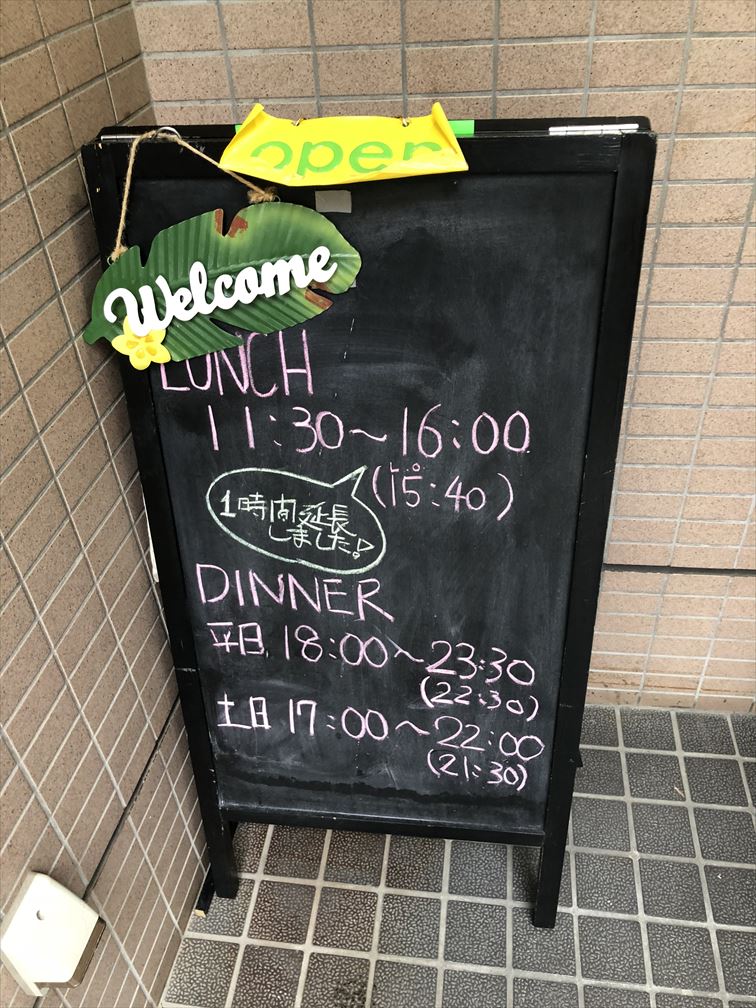 open
Welcome
LUNCH
11:30～16:00
L.O
(15:40)
1時間延長
しました!
DINNER
平日 18:00～23:30
(22:30)
土日 17:00～22:00
(21:30)